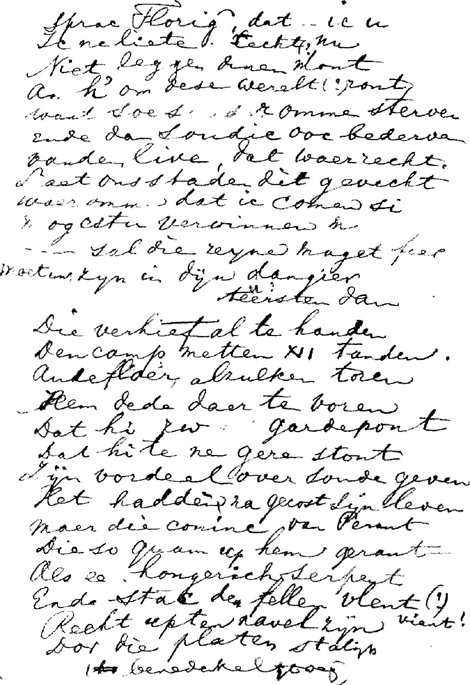 sprac Florig, dat ic u
Ic ne liete techt, nu
Niet leggen dinen mont
An h' om dese werelt (:ront)
want soe s romme sterven
ende dan soudic ooc bederven
vanden live, dat waer recht.
Laet ons staden dit gevecht
waer omm dat ic comen si
ogestu verwinnen
sal die reyne maget fier
moeten zyn in dyn dangier
teersten dan
Die verhief al te handen
Den camp metten XII tanden.
Andefloer, alzulken toren
Hem dede daer te voren
Dat hi zw gardepont
Dat hi te negere stont
Zijn vordeel over soude geven
Het hadden na gecost sijn leven
maer die coninc van Perant
Die so quam up hem gerant
Als ee hongerich serpent
Ende stac den fellen vlent (?)
Recht upten navel zijn vient!
Dor die platen stalijn